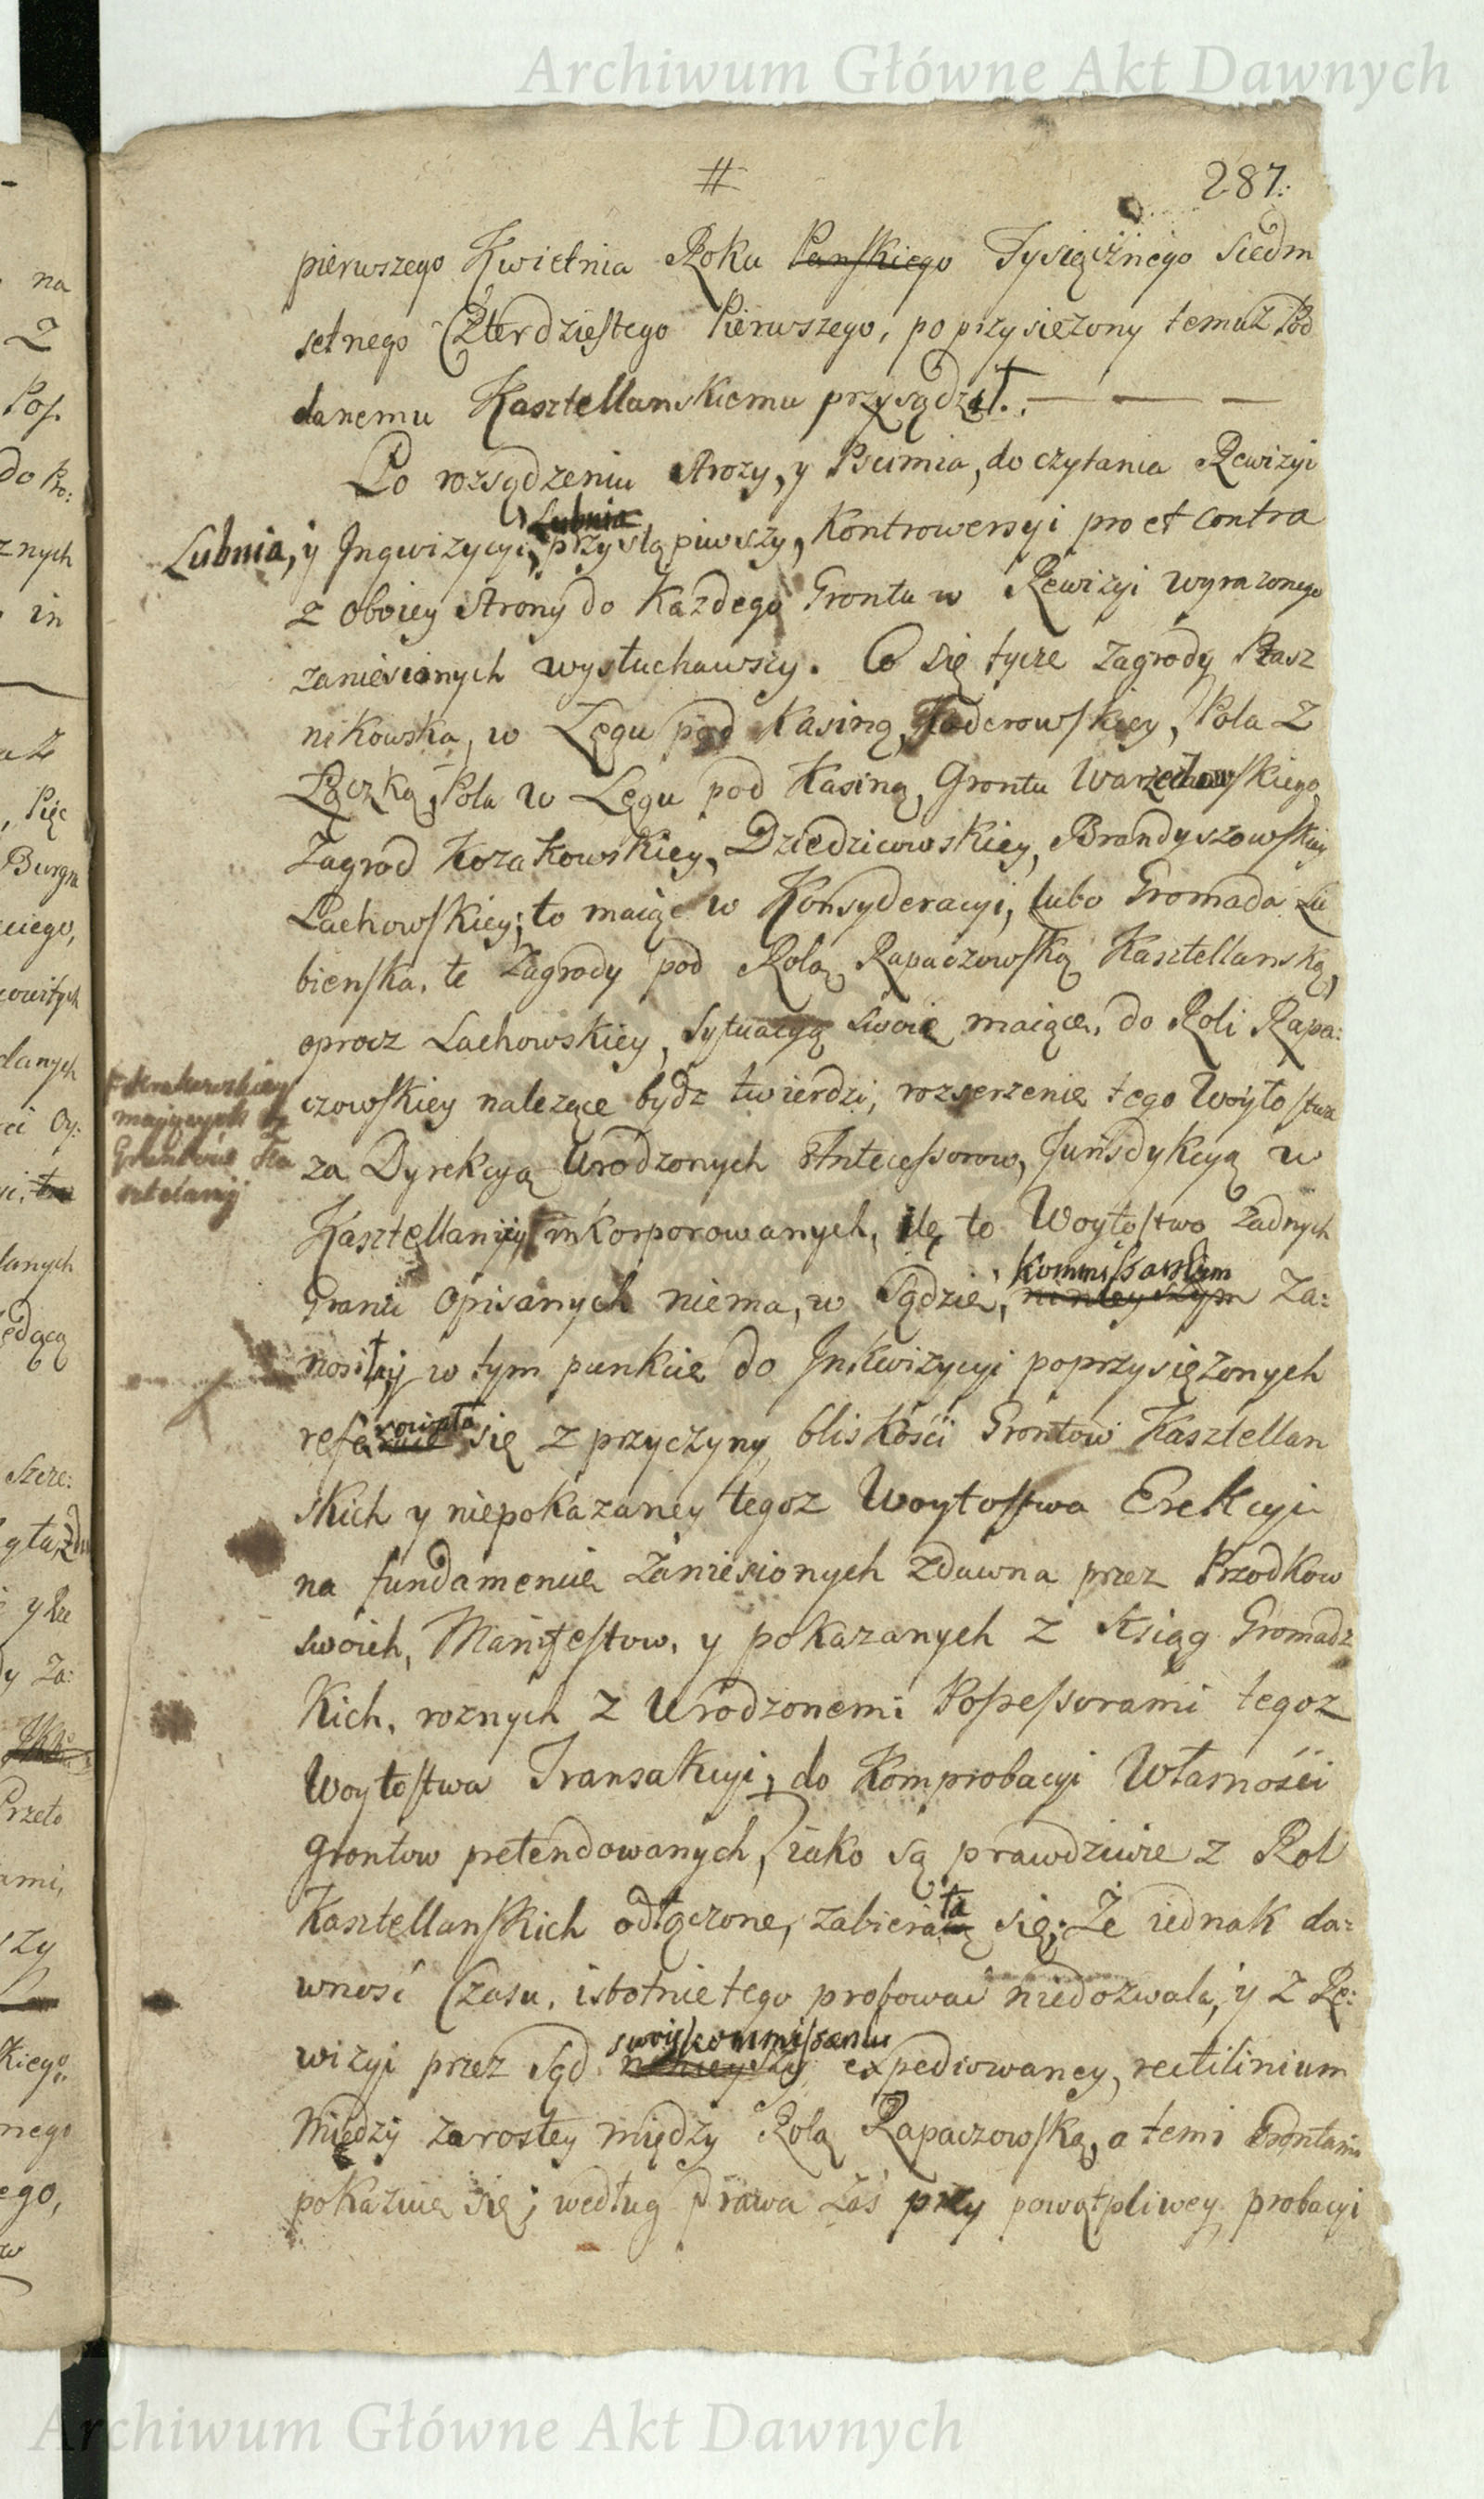 Archiwum Główne Akt Dawnych
# 287.
pierwszego Kwietnia Roku Panskiego Tysiącznego Siedm
setnego Czterdziestego Pierwszego, poprzysięzony temuz Pod
danemu Kasztellanskiemu przysądził. — — —
Po rozsądzeniu Strozy, y Pscimia, do czytania Rewizyi
Lubnia
Lubnia, y Inqwizycyi, przystąpiwszy, Kontrowersyi pro et contra
z oboiey strony do Kazdego Grontu w Rewizyi wyrazonego
zaniesionych wysłuchawszy. Co się tycze Zagrody Ptasz
nikowska, w Łęgu pod Kasiną, Foderowskiey, Pola z
Łączką, Pola w Łęgu pod Kasiną, Grontu Warzechowskiego,
Zagrod Kozakowskiey, Dziedzicowskiey, Brandyszowskiey
Lachowskiey; to maiąc w Konsyderacyi, lubo Gromada Lu
bienska, te Zagrody pod Rolą Rapaczowską Kasztellanską,
oprocz Lachowskiey, Sytuacyą swoię maiące, do Roli Rapa:
czowskiey nalezące bydz twierdzi, rozserzenie tego Woytostwa
za Dyrekcyą Urodzonych Antecessorow, Jurisdykcyą w
Kasztellaniy inkorporowanych, ile to Woytostwo Zadnych
Kommissarskim
Granic Opisanych niema, w Sądzie, ninieyszym Za:
nosiły w tym punkcie do Inkwizycyi poprzysięzonych
rowała
refe się z przyczyny bliskości Grontow Kasztellan
skich y niepokazaney tegoz Woytostwa Erekcyi
na fundamencie Zaniesionych zdawna przez Przodkow
swoich, Manifestow, y pokazanych z Ksiąg Gromadz
Kich, roznych z Urodzonemi Possessorami tegoz
Woytostwa Transakcyi, do Komprobacyi Własności
Grontow pretendowanych, iako są prawdziwie z Rol
ta
Kasztellanskich odłączone, zabiera się; Że iednak da:
wnosć Czasu, istotnie tego probować niedozwala, y z Re:
swoy kommissarski
wizyi przez Sąd ninieyszy expediowaney, rectilinium
Miedzy zarosłey między Rolą Rapaczowską, a temi Grontami
pokazuie się; według prawa zaś przy powątpliwey probacyi
Archiwum Główne Akt Dawnych